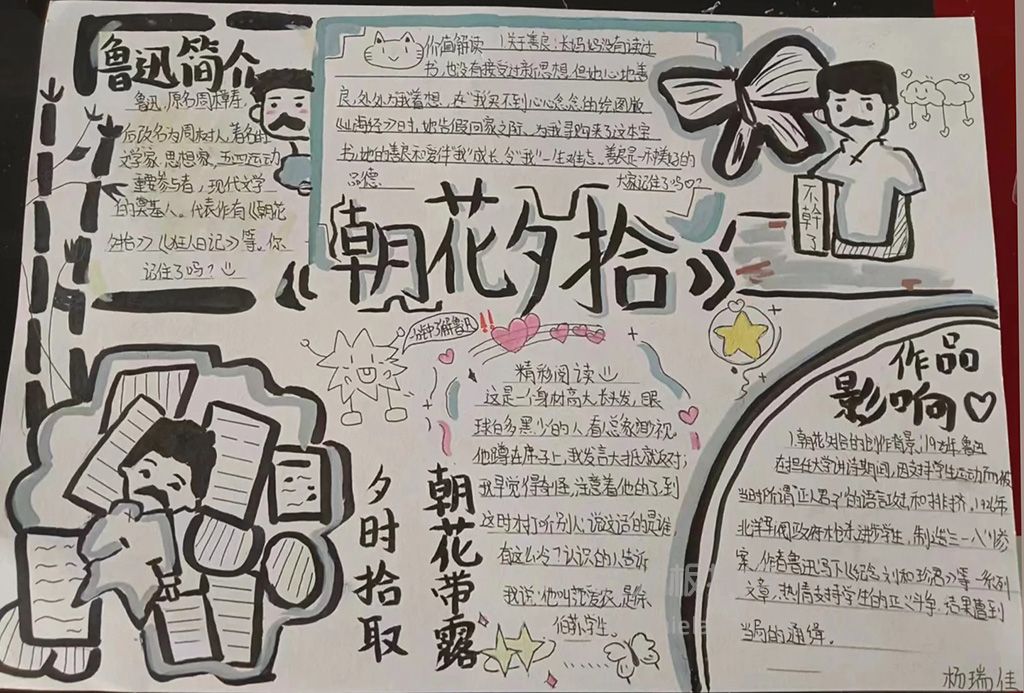 鲁迅简介
鲁迅,原名周樟寿,
后改名为周树人,著名的
文学家、思想家,五四运动
重要参与者,现代文学
的奠基人。代表作有《朝花
夕拾》《狂人日记》等。你
记住了吗?
价值解读 1关于善良:长妈妈没有读过
书,也没有接受过新思想,但她心地善
良,处处为我着想,在"我买不到心心念念的绘图版
《山海经》时,她告假回家之际,为我寻购来了这本宝
书,她的善良和爱伴"我"成长,令"我"一生难忘。善良是一种美好的
品德. 大家记住了吗?
不幹了
《朝花夕拾》
1分钟了解鲁迅!!
精彩阅读
这是一个身材高大,长发,眼
球白多黑少的人,看人总象在渺视
他蹲在席子上,我发言大抵就反对;
我早觉得奇怪,注意着他的了,到
这时才打听别人:说这话的是谁
有这么冷?认识的人告诉
我说:他叫范爱农,是徐
伯荪学生。
朝花带露
夕时拾取
作品
影响
1朝花夕拾的创作背景,1925年鲁迅
在担任大学讲师期间,因支持学生运动而被
当时所谓"正人君子"的流言攻击和排挤,1926年
北洋军阀政府枪杀进步学生,制造三一八惨
案,作者鲁迅写下《纪念刘和珍君》等一系列
文章,热情支持学生的正义斗争,结果遭到
当局的通缉。
杨瑞佳